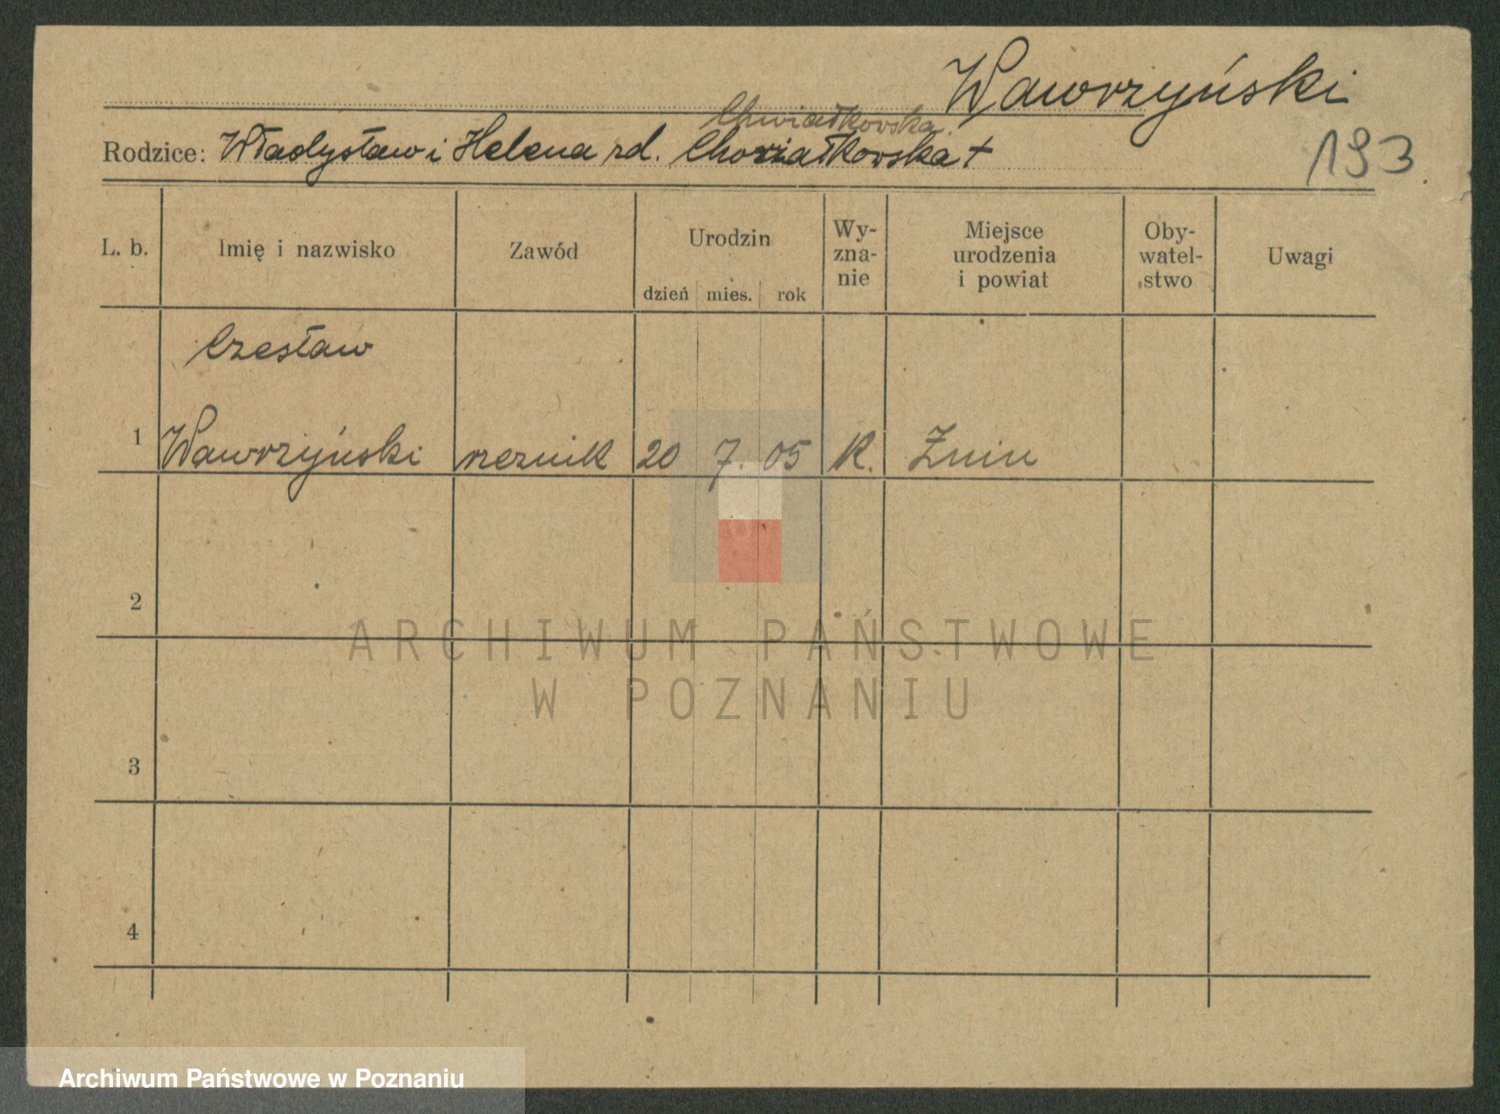 Wawrzyński
Chwiałkowska
Rodzice: Władysław i Helena rd. Chwiałkowska +
193
L. b.
Imię i nazwisko
Zawód
Urodzin
dzień mies. rok
Wy-
zna-
nie
Miejsce
urodzenia
i powiat
Oby-
watel-
stwo
Uwagi
Czesław
1 Wawrzyński rzeznik 20 7. 05 K. Żnin
2
ARCHIWUM PAŃSTWOWE
W POZNANIU
3
4
Archiwum Państwowe w Poznaniu